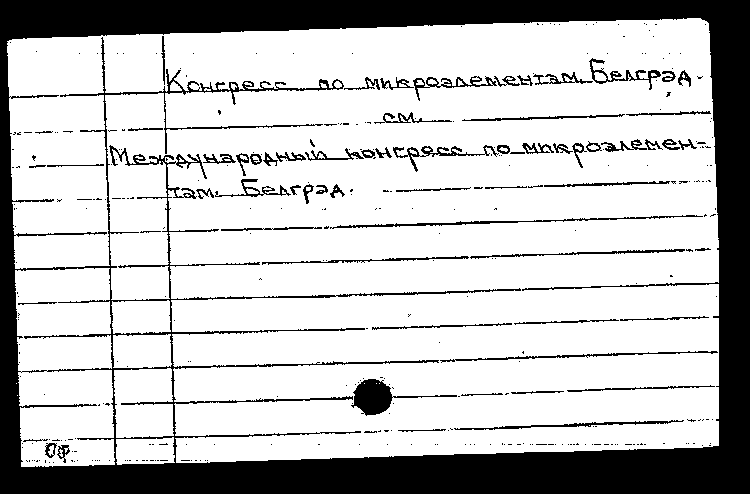 Конгресс по микроэлементам. Белград.
см.
Международный конгресс по микроэлемен-
там. Белград.
Оф